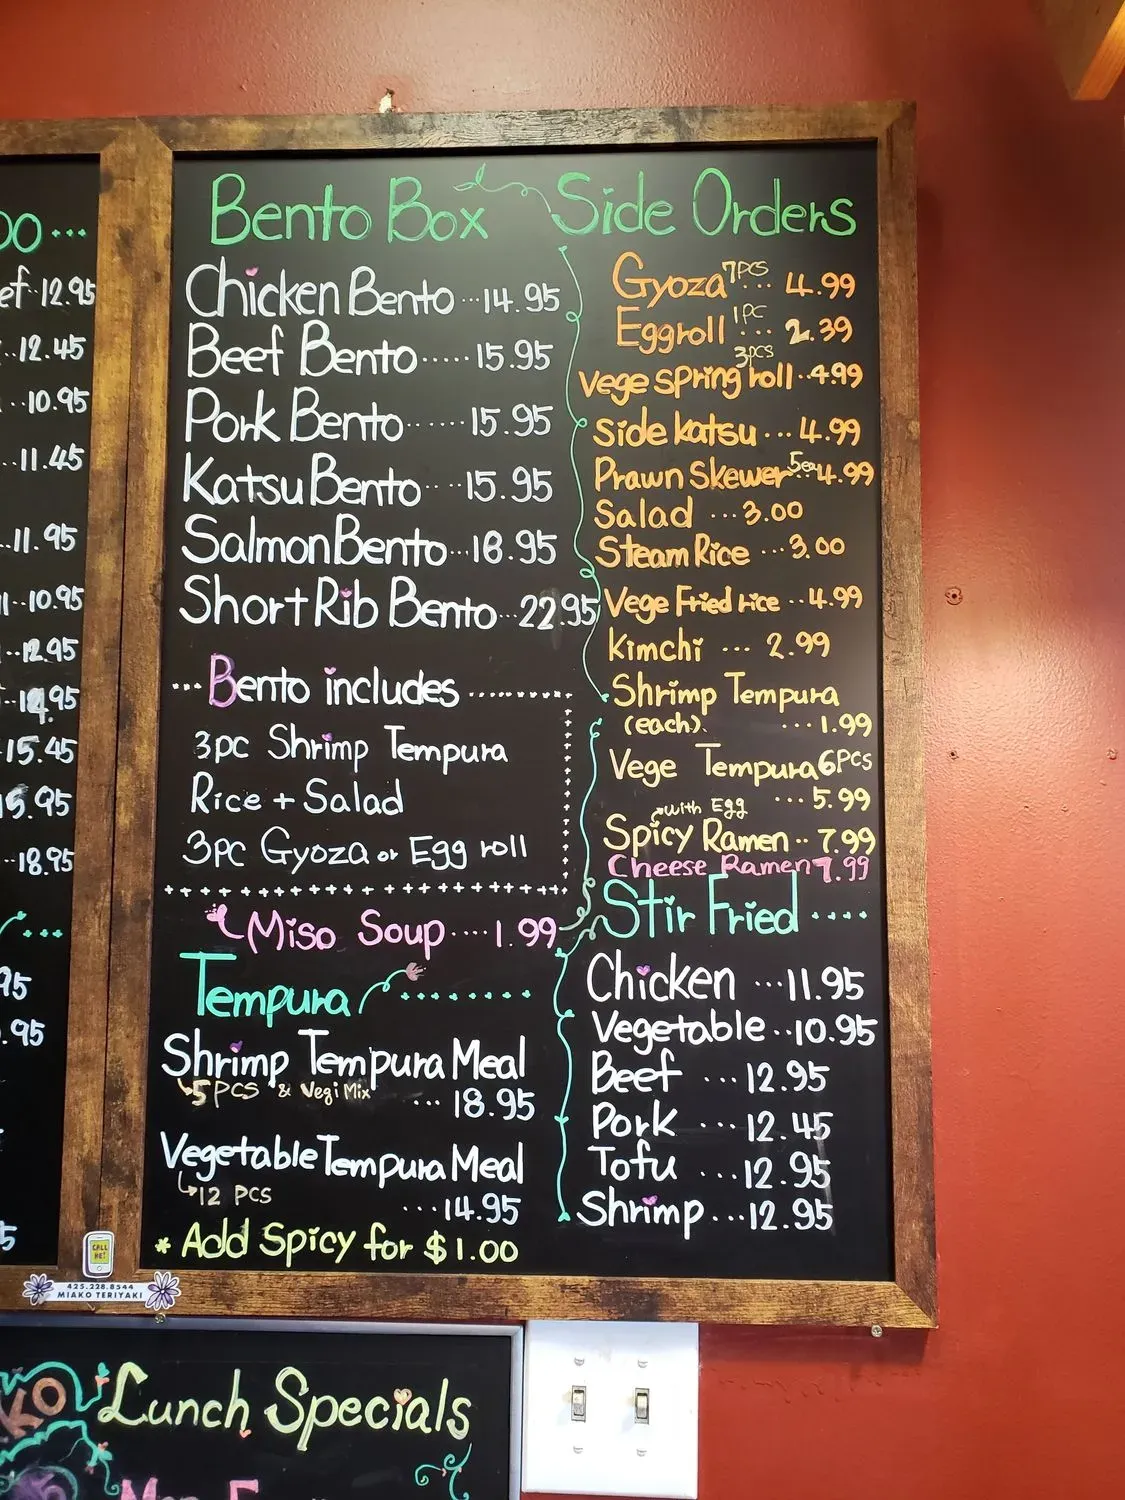 oo...
ef..12.95
..12.45
..10.95
...11.45
..11.95
..10.95
..12.95
..15.45
15.95
..18.95
95
.95
5
Bento Box
Chicken Bento...14.95
Beef Bento.....15.95
Pork Bento......15.95
Katsu Bento....15.95
Salmon Bento..18.95
Short Rib Bento..22.95
...Bento includes........
3pc Shrimp Tempura
Rice + Salad
3pc Gyoza or Egg roll
Miso Soup....1.99
Tempura
Shrimp Tempura Meal
5 PCS & Vegi Mix
...18.95
Vegetable Tempura Meal
12 PCS
...14.95
* Add Spicy for $1.00
Side Orders
Gyoza 7PCS... 4.99
Eggroll 1PC... 2.39
Vege Spring roll 3PCS..4.99
Side Katsu...4.99
Prawn Skewer 5ea..4.99
Salad ...3.00
Steam Rice ...3.00
Vege Fried rice..4.99
Kimchi ... 2.99
Shrimp Tempura
(each). ...1.99
Vege Tempura 6PCS
...5.99
with Egg
Spicy Ramen..7.99
Cheese Ramen 7.99
Stir Fried....
Chicken ...11.95
Vegetable..10.95
Beef ...12.95
Pork ...12.45
Tofu ...12.95
Shrimp...12.95
CALL ME!
425.228.8544
MIAKO TERIYAKI
KO
Lunch Specials